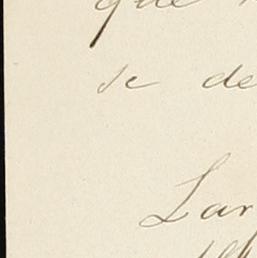 que
se de
Lar